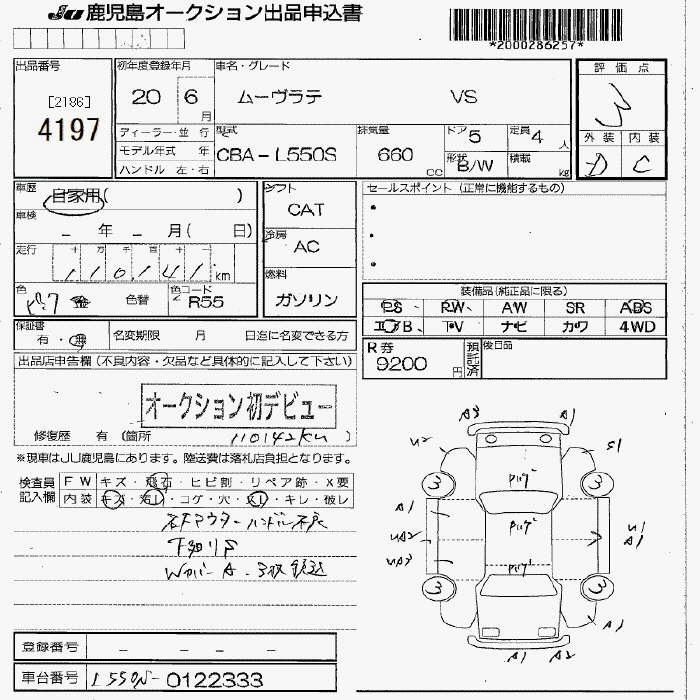 JU 鹿児島オークション出品申込書
*2000286257*
出品番号
[2186]
4197
初年度登録年月
20 6
月
車名・グレード
ムーヴラテ VS
評価点
3
外装 内装
D C
ディーラー・並 行
モデル年式 年
ハンドル 左・右
型式
CBA-L550S
排気量
660
cc
ドア 5
定員 4 人
形状 B/W
積載 kg
車歴 自家用( )
車検
- 年 - 月( 日)
走行 十 万 千 百 十
110,141 km
色
色替
色コード
R55
シフト
CAT
冷房
AC
燃料
ガソリン
セールスポイント (正常に機能するもの)
•
•
•
装備品(純正品に限る)
PS PW AW SR ABS
エアB TV ナビ カワ 4WD
保証書
有・無
名変期限 月 日迄に名変できる方
R券
9200
円
預託済
後日品
出品店申告欄 (不良内容・欠品など具体的に記入して下さい)
オークション初デビュー
修復歴 有 (箇所 110142km )
※現車はJU鹿児島にあります。陸送費は落札店負担となります。
検査員記入欄
FW キズ・飛石・ヒビ割・リペア跡・X要
内装 キズ・汚レ・コゲ・穴・スレ・キレ・破レ
下廻りS
WカバーA
A3 A1
U2 S1
3 3
A1
UA2
UA3
U1
A1
3 3
A1
A1 A2
登録番号 - - - -
車台番号 L550S-0122333